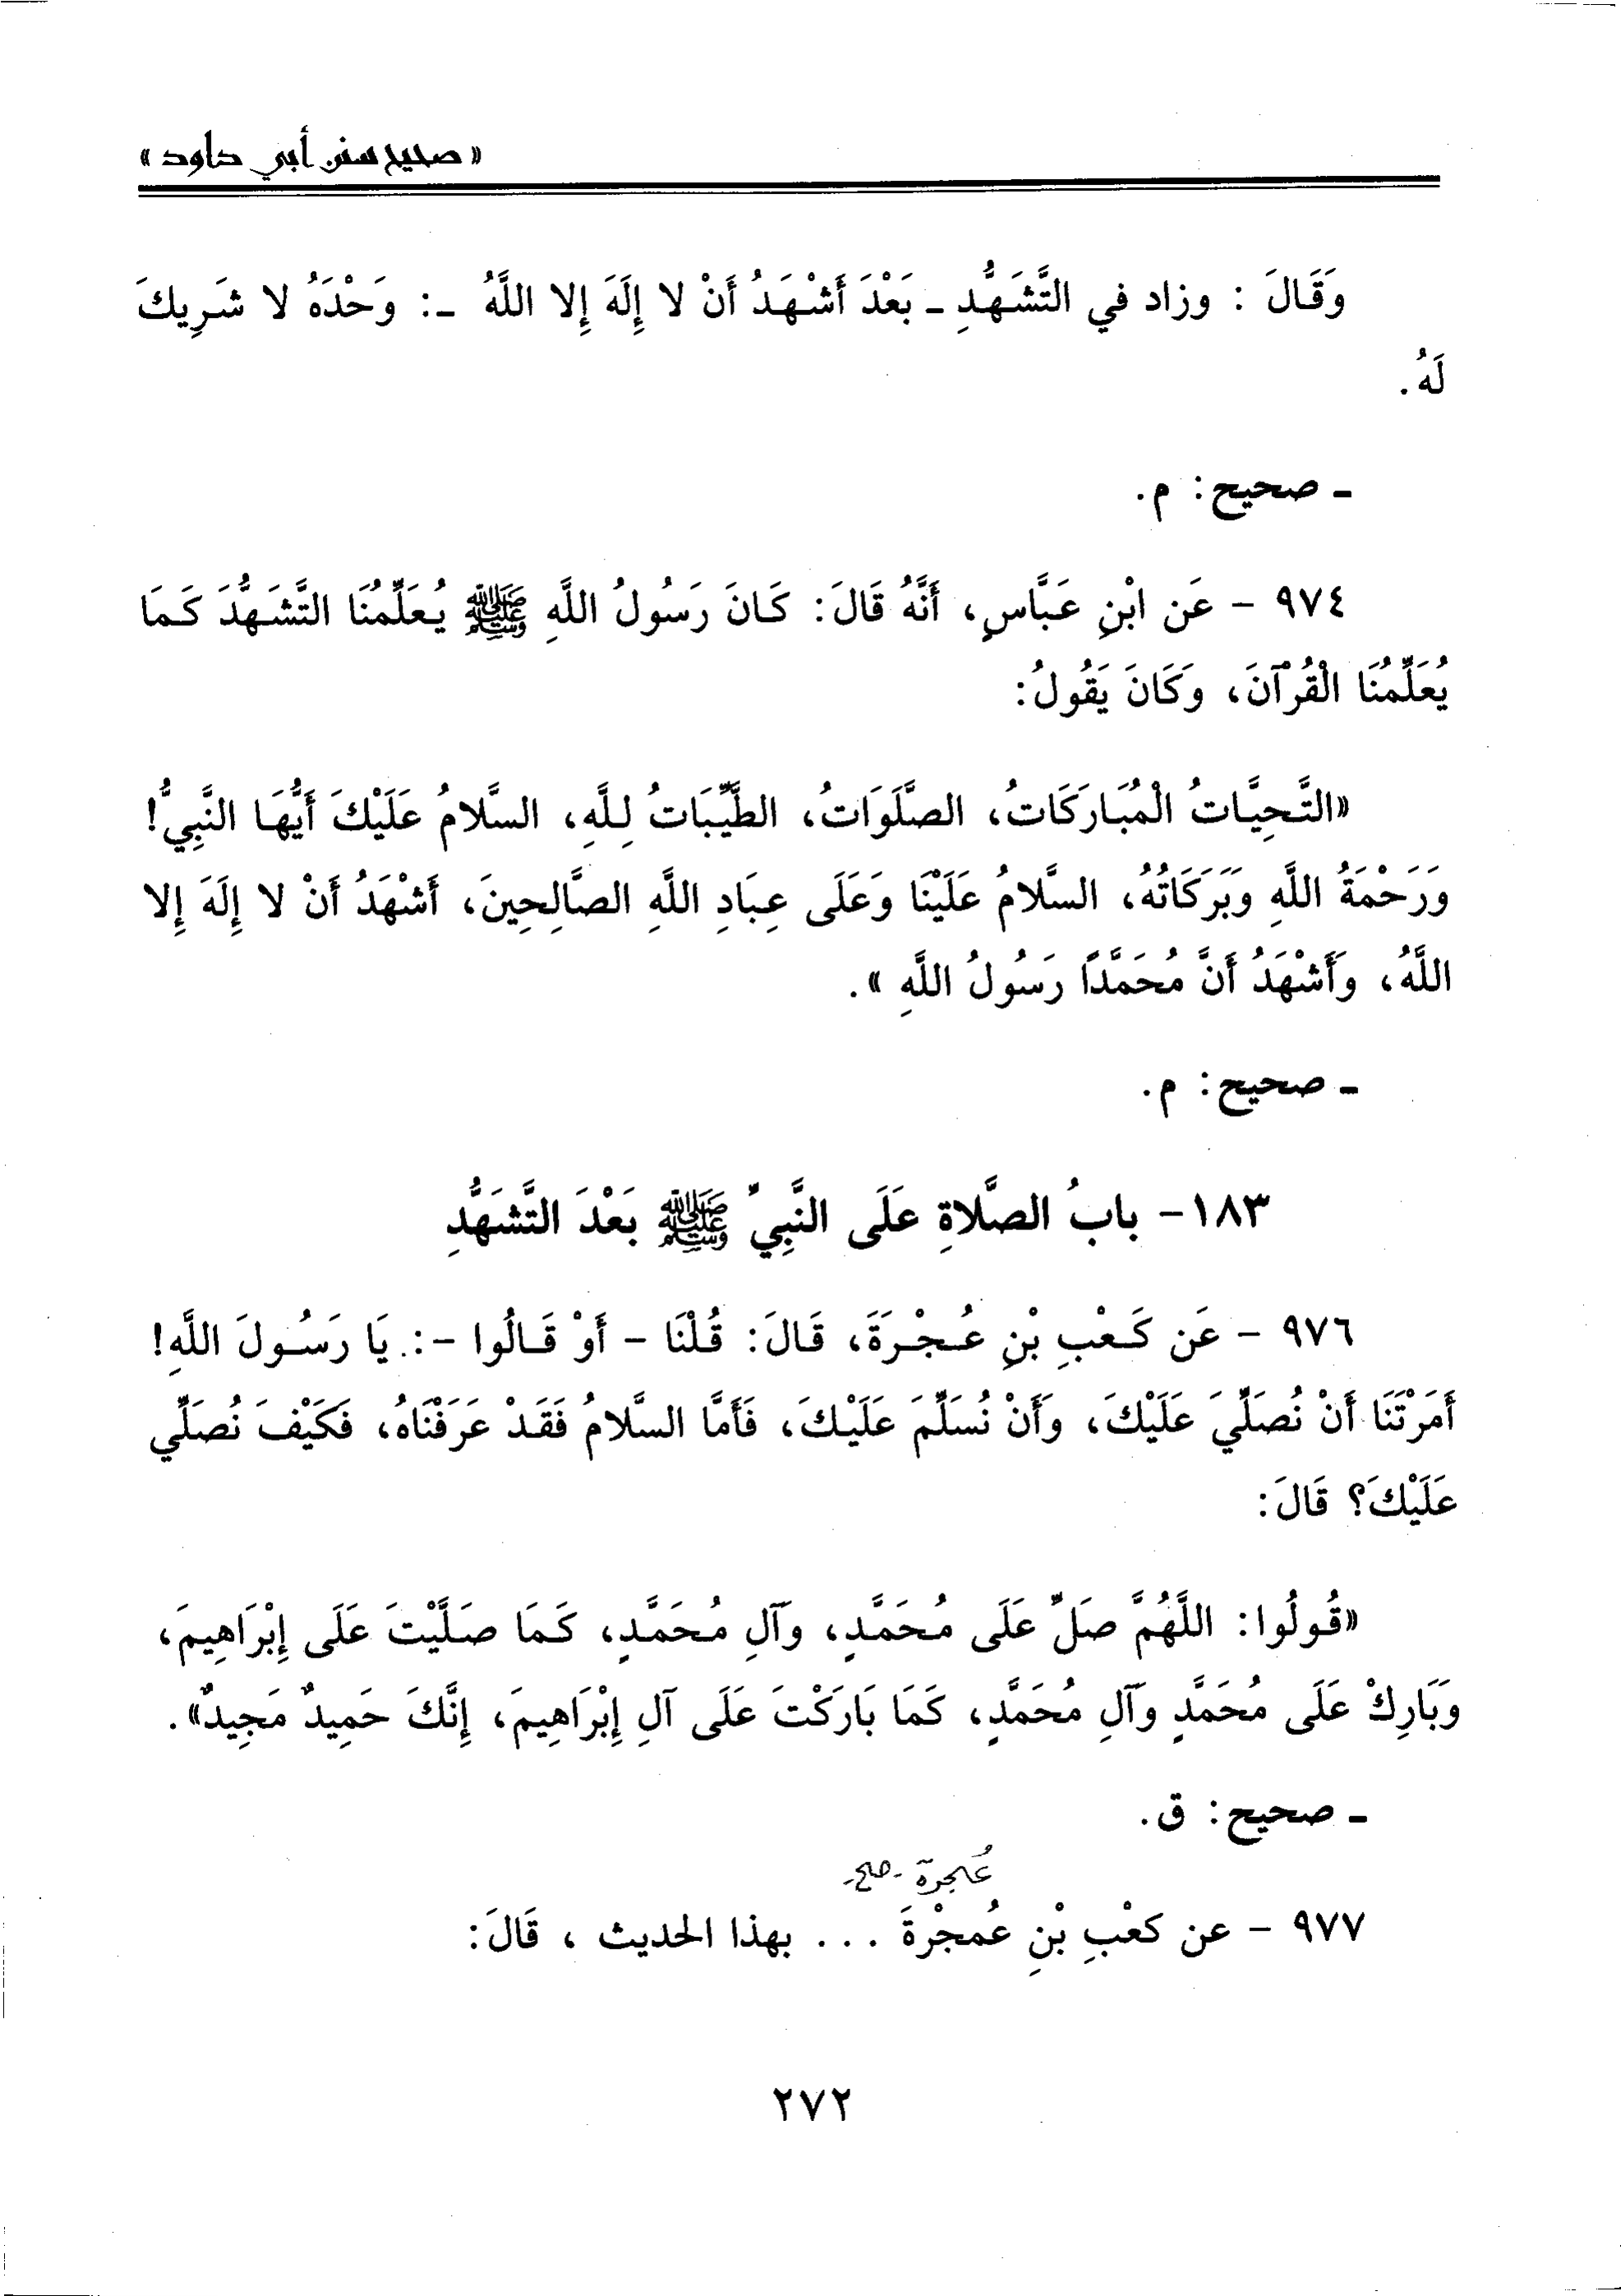 « صحيح سنن أبي داود »
وَقَالَ : وزاد في التَّشَهُّدِ ـ بَعْدَ أَشْهَدُ أَنْ لا إِلَهَ إِلا اللَّهُ ـ: وَحْدَهُ لا شَرِيكَ
لَهُ .
ـ صحيح : م .
٩٧٤ - عَن ابْنِ عَبَّاسٍ، أَنَّهُ قَالَ: كَانَ رَسُولُ اللَّهِ ﷺ يُعَلِّمُنَا التَّشَهُّدَ كَمَا
يُعَلِّمُنَا الْقُرْآنَ، وَكَانَ يَقُولُ:
«التَّحِيَّاتُ الْمُبَارَكَاتُ، الصَّلَوَاتُ، الطَّيِّبَاتُ لِلَّهِ، السَّلامُ عَلَيْكَ أَيُّهَا النَّبِيُّ!
وَرَحْمَةُ اللَّهِ وَبَرَكَاتُهُ، السَّلامُ عَلَيْنَا وَعَلَى عِبَادِ اللَّهِ الصَّالِحِينَ، أَشْهَدُ أَنْ لا إِلَهَ إِلا
اللَّهُ، وَأَشْهَدُ أَنَّ مُحَمَّدًا رَسُولُ اللَّهِ » .
ـ صحيح : م .
١٨٣ - بابُ الصَّلاةِ عَلَى النَّبِيِّ ﷺ بَعْدَ التَّشَهُّدِ
٩٧٦ - عَن كَعْبِ بْنِ عُجْرَةَ، قَالَ: قُلْنَا - أَوْ قَالُوا -: يَا رَسُولَ اللَّهِ!
أَمَرْتَنَا أَنْ نُصَلِّيَ عَلَيْكَ، وَأَنْ نُسَلِّمَ عَلَيْكَ، فَأَمَّا السَّلامُ فَقَدْ عَرَفْنَاهُ، فَكَيْفَ نُصَلِّي
عَلَيْكَ؟ قَالَ:
«قُولُوا: اللَّهُمَّ صَلِّ عَلَى مُحَمَّدٍ، وَآلِ مُحَمَّدٍ، كَمَا صَلَّيْتَ عَلَى إِبْرَاهِيمَ،
وَبَارِكْ عَلَى مُحَمَّدٍ وَآلِ مُحَمَّدٍ، كَمَا بَارَكْتَ عَلَى آلِ إِبْرَاهِيمَ، إِنَّكَ حَمِيدٌ مَجِيدٌ» .
ـ صحيح : ق .
عُجرة - صح -
٩٧٧ - عن كَعْبِ بْنِ عُمجْرةَ . . . بهذا الحديث ، قَالَ:
٢٧٢